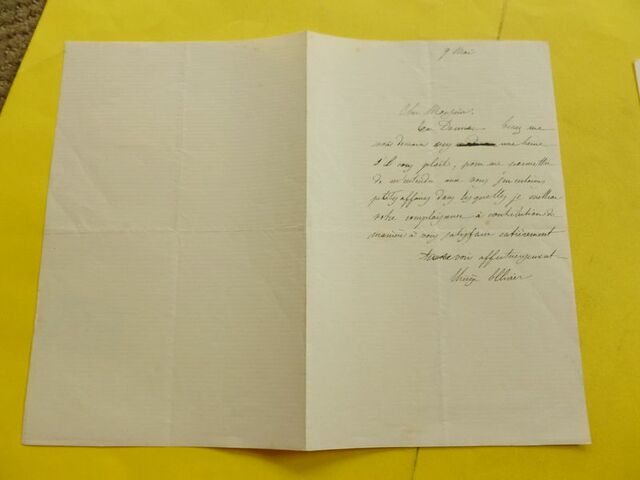 9 Mai
Cher Monsieur,
Venez me
voir demain une heure
s'il vous plait, pour me permettre
de m'entendre avec vous sur certaines
petites affaires dans lesquelles je mettrai
votre complaisance à contribution de
manière à vous satisfaire entièrement
à vous affectueusement
Ollivier